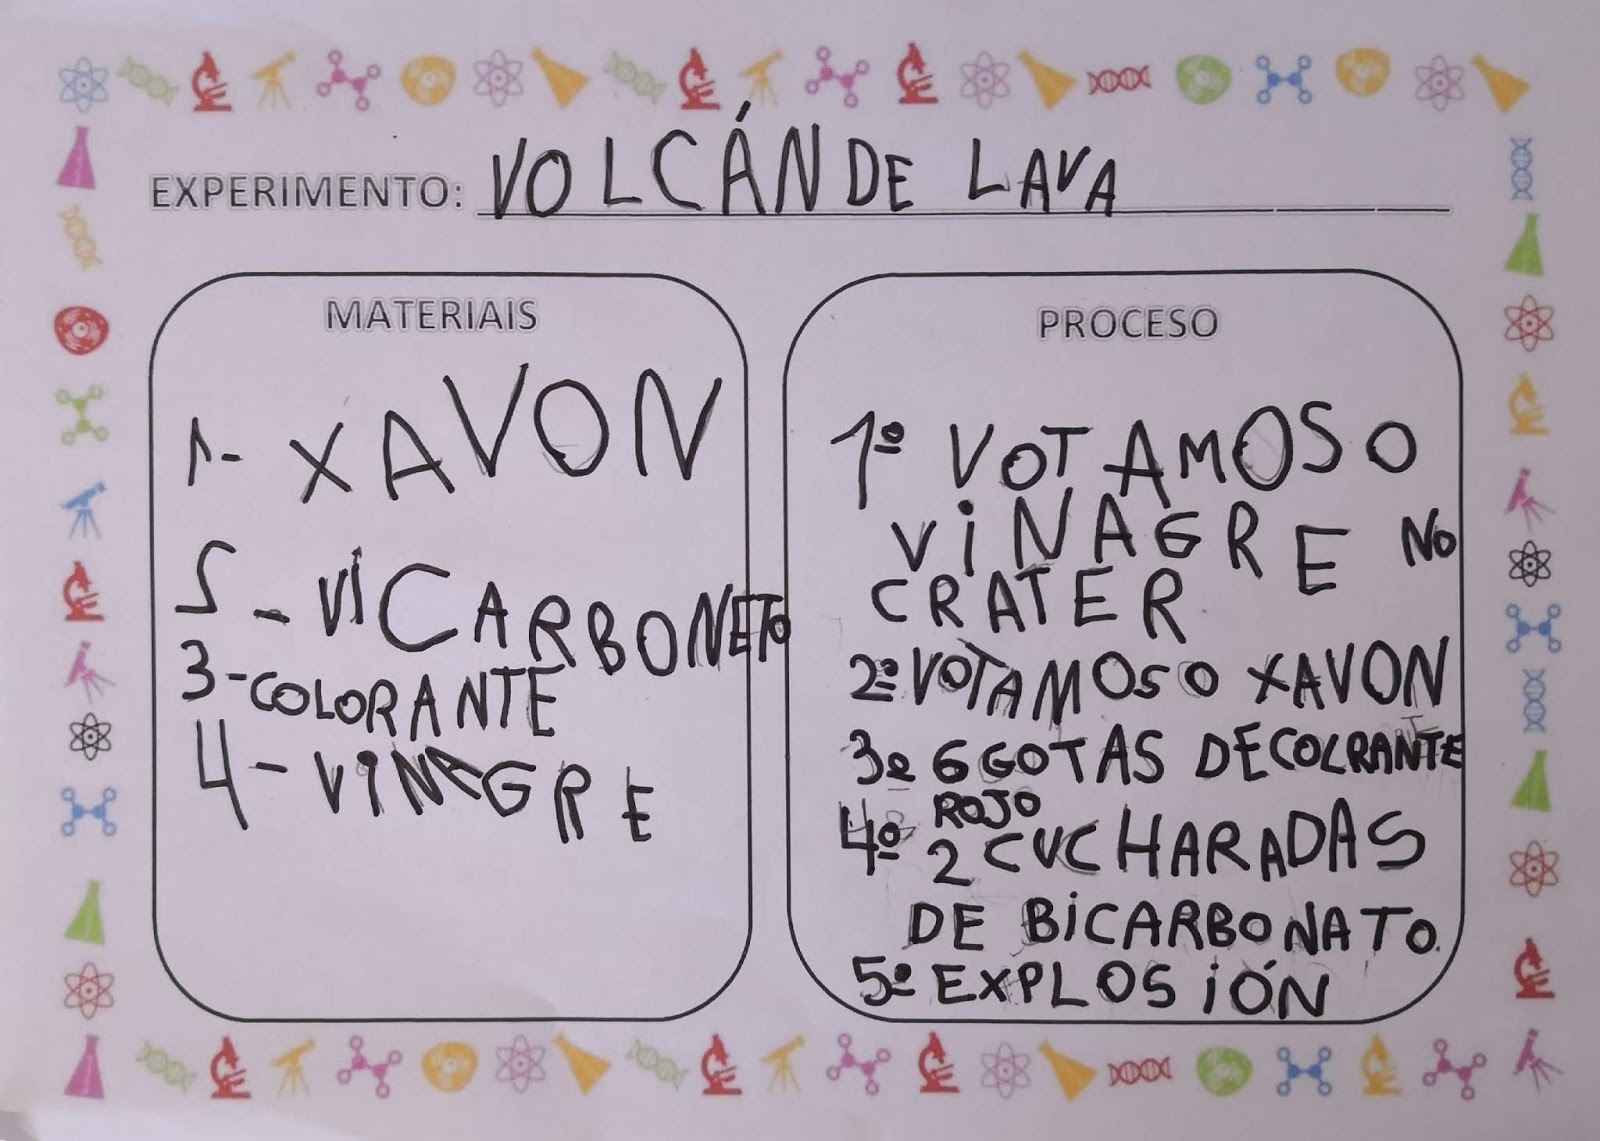 EXPERIMENTO: VOLCÁN DE LAVA
MATERIAIS
1- XAVON
2 - VICARBONETO
3-COLORANTE
4- VINAGRE
PROCESO
1º VOTAMOS O
VINAGRE NO
CRATER
2º VOTAMOS O XAVON
3º 6 GOTAS DE COLRANTE
ROJO
4º 2 CUCHARADAS
DE BICARBONATO.
5º EXPLOSIÓN